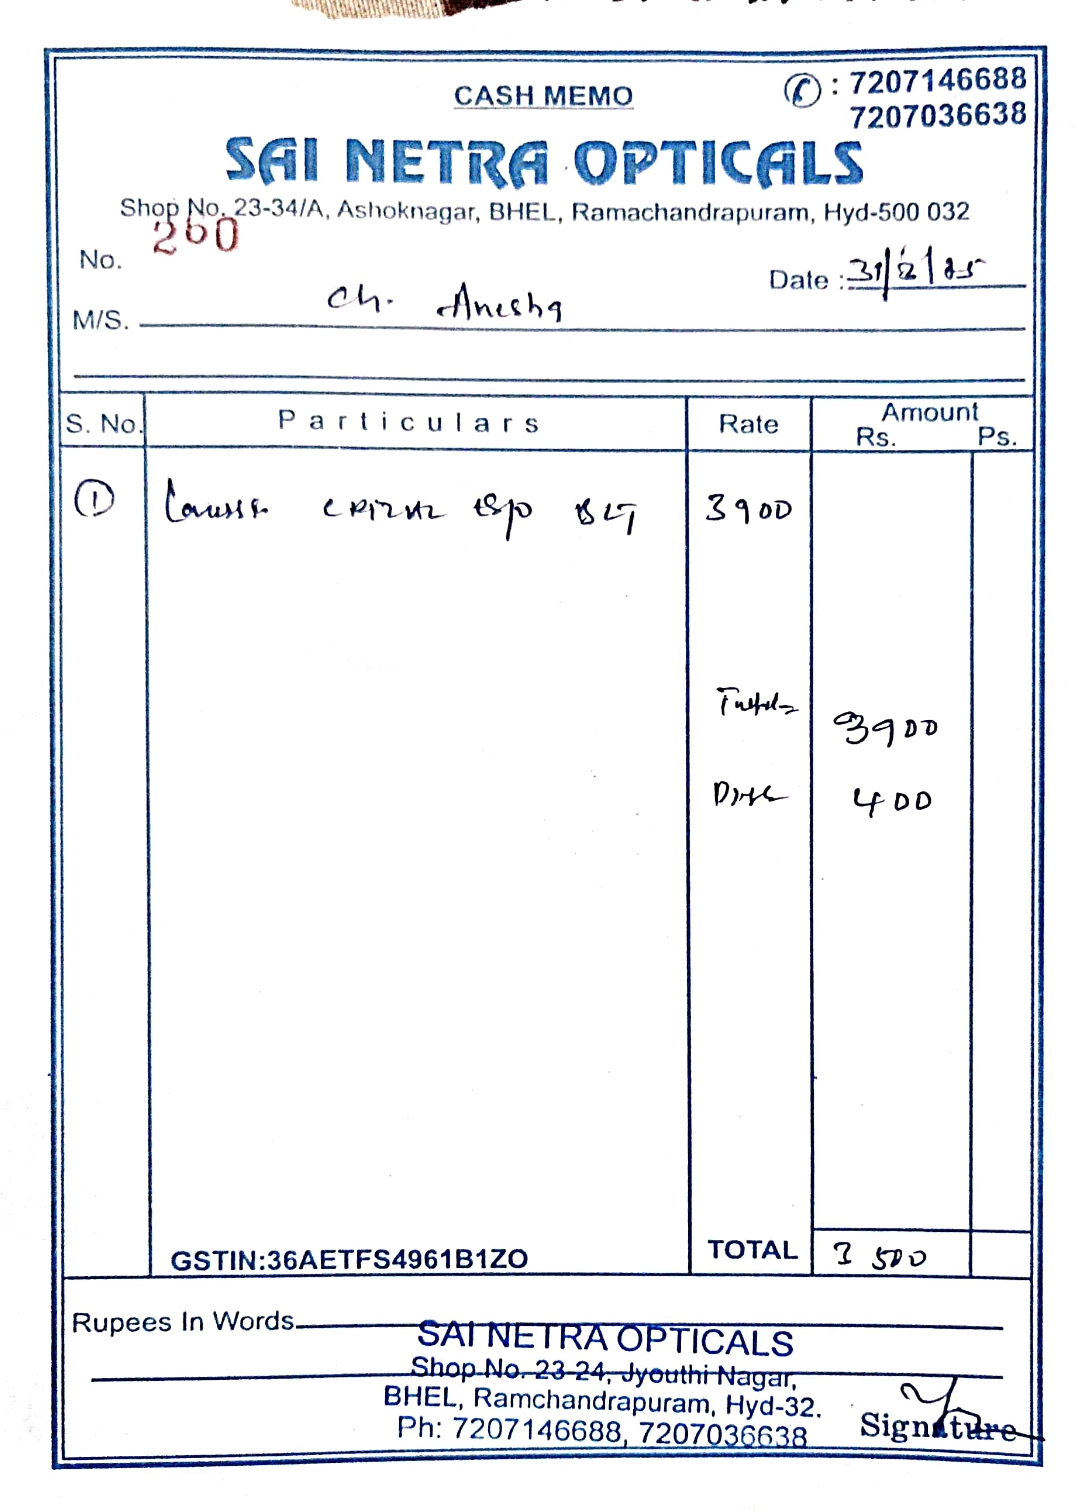 CASH MEMO
: 7207146688
7207036638
SAI NETRA OPTICALS
Shop No. 23-34/A, Ashoknagar, BHEL, Ramachandrapuram, Hyd-500 032
No. 260
Date :
M/S. Ch. Anesha
S. No. Particulars Rate Amount
Rs. Ps.
1 CRIZAL 3900
3900
Disc 400
GSTIN:36AETFS4961B1ZO TOTAL 3500
Rupees In Words
SAI NETRA OPTICALS
Shop No. 23-24, Jyouthi Nagar,
BHEL, Ramchandrapuram, Hyd-32.
Ph: 7207146688, 7207036638
Signature